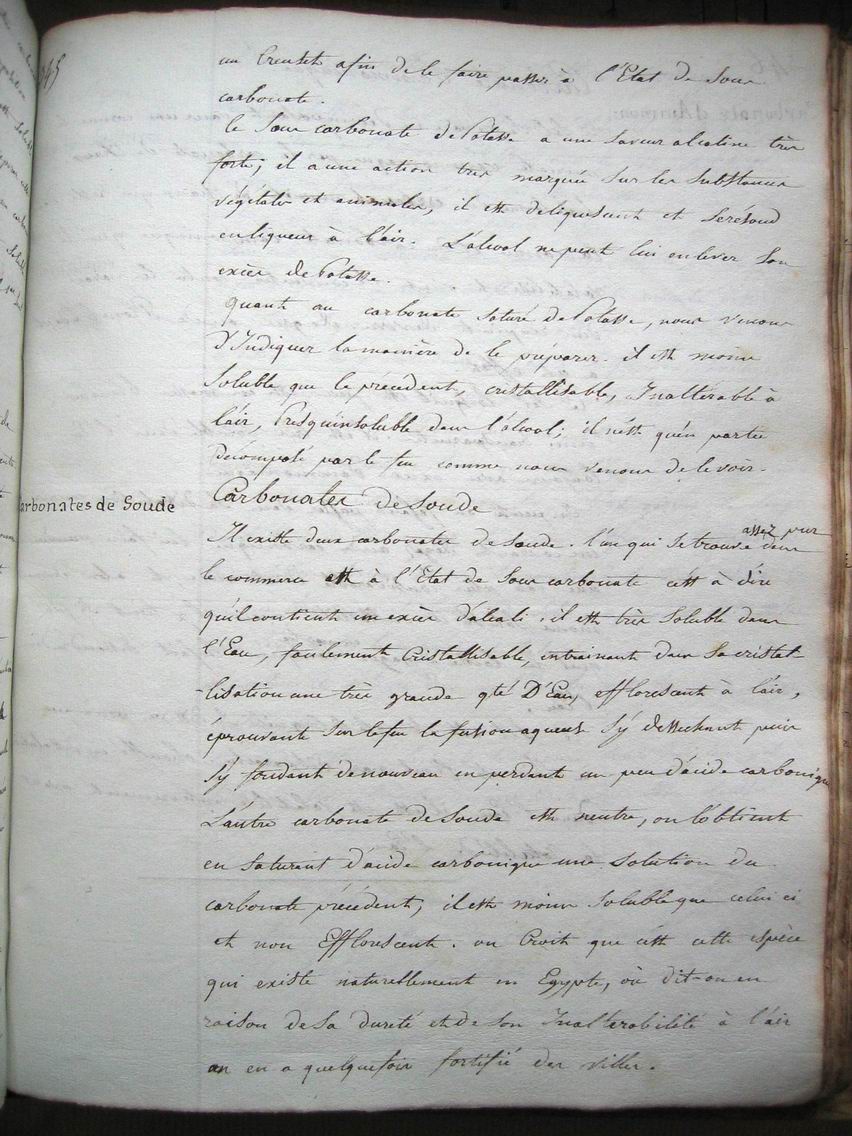 un Creuset afin de le faire passer à l'Etat de Sous
carbonate.
Le Sous carbonate de Potasse a une Saveur alcaline très
forte; il a une action très marquée Sur les Substances
végétales et animales, il est déliquescent et Se résoud
en liqueur à l'air. L'alcool ne peut lui enlever Son
excès de Potasse.
Quant au carbonate Saturé de Potasse, nous venons
D'Indiquer la manière de le préparer. il est moins
Soluble que le précédent, cristallisable, Inaltérable à
l'air, Presqu'insoluble dans l'alcool; il n'est qu'en partie
Décomposé par le feu comme nous venons de le voir.
Carbonates de Soude
Carbonates de Soude
Il existe deux carbonates de Soude. l'un qui Se trouve assez pur dans
le commerce est à l'Etat de Sous carbonate c'est à dire
qu'il contient un excès d'alcali. il est très Soluble dans
l'Eau, facilement Cristallisable, entrainant dans Sa cristal-
-lisation une très grande qté D'Eau, efflorescent à l'air,
éprouvant Sur le feu la fusion aqueuse S'y dessechant puis
S'y fondant de nouveau en perdant un peu d'acide carbonique
L'autre carbonate de Soude est neutre, on l'obtient
en Saturant d'acide carbonique une Solution du
carbonate précédent, il est moins Soluble que celui ci
et non Efflorescent. on Croit que c'est cette espèce
qui existe naturellement en Egypte, où dit-on en
raison de Sa dureté et de Son Inaltérabilité à l'air
on en a quelquefois fortifié des villes.